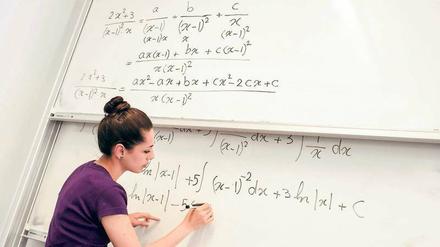 2x²+3 / (x-1)²·x = a / (x-1) + b / (x-1)² + c / x
(x-1)x x (x-1)²
= ax(x-1) + bx + c(x-1)² / x(x-1)²
2x²+3 / (x-1)²x = ax² - ax + bx + cx² - 2cx + c / x(x-1)²
(x-1)² dx + 3∫ 1/x dx
|x-1| + 5∫ (x-1)⁻² dx + 3 ln|x| + C
ln|x-1| - 5